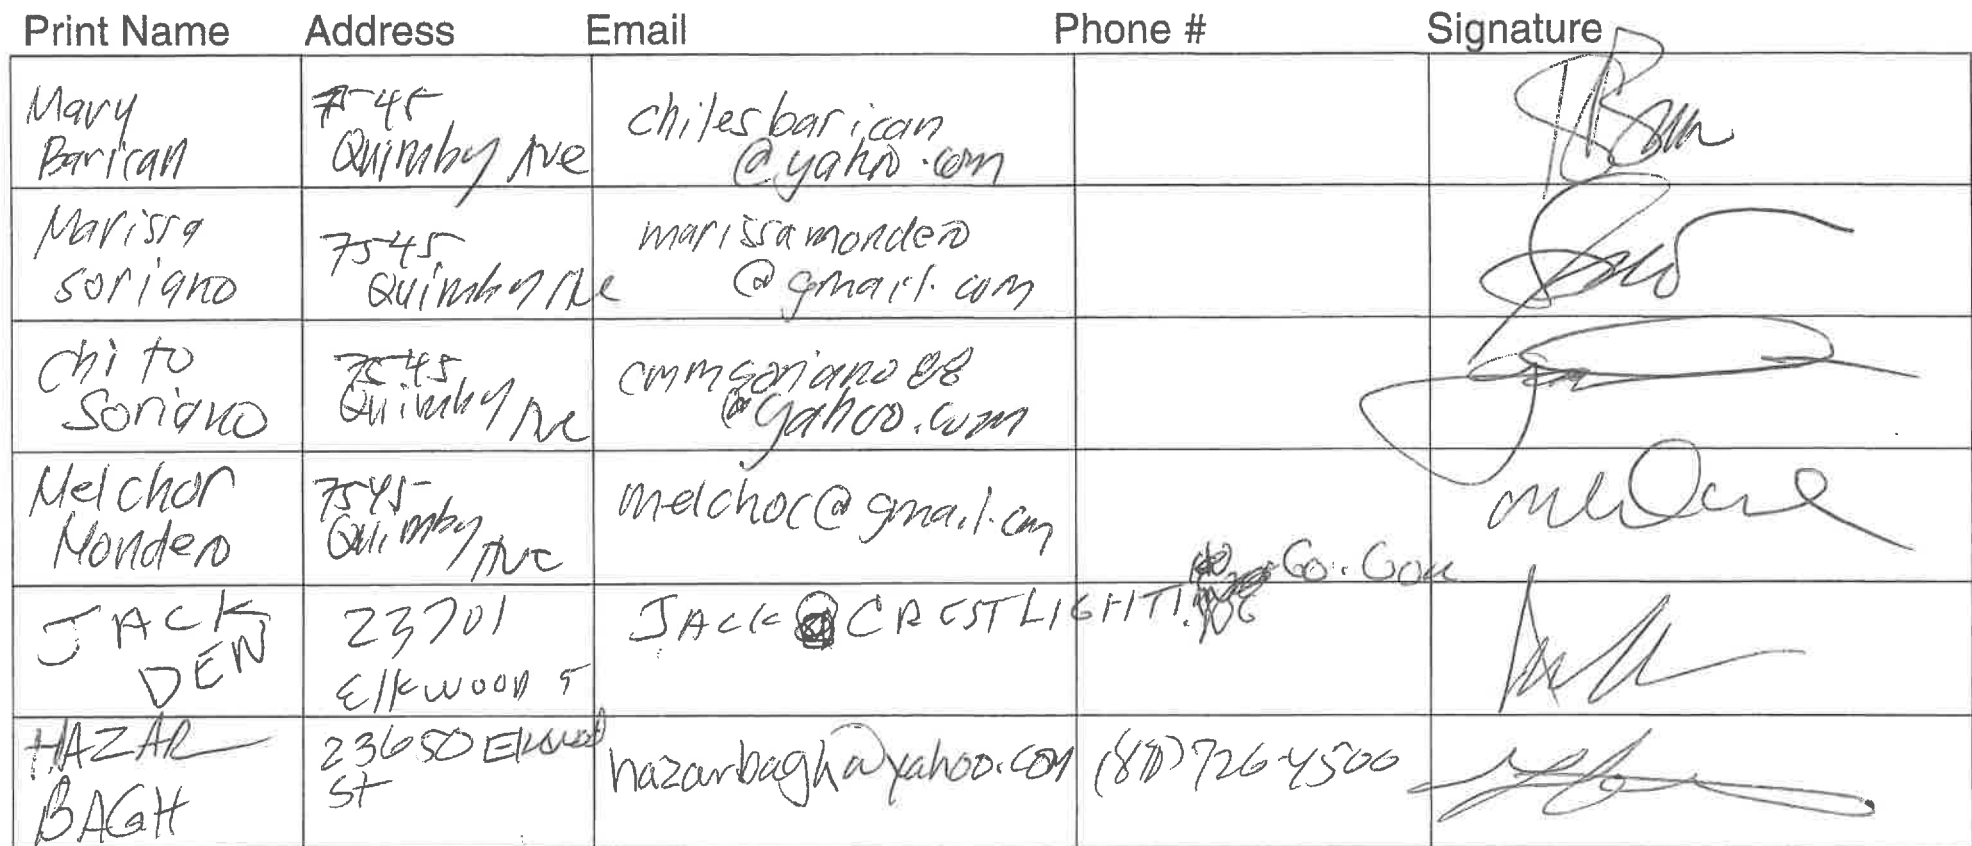 Print Name Address Email Phone # Signature
Mary
Barican
7545
Quimby Ave
chilesbarican
@yahoo.com
Marissa
Soriano
7545
Quimby Ave
marissamondero
@gmail.com
Chito
Soriano
7545
Quimby Ave
cmmsoriano88
@yahoo.com
Melchor
Mondero
7545
Quimby Ave
melchor@gmail.com
JACK
DEN
23701
Elkwood St
JACK@CRESTLIGHTING
HAZAR
BAGH
23650 Elkwood
St
hazarbagh@yahoo.com
(818) 726-4500